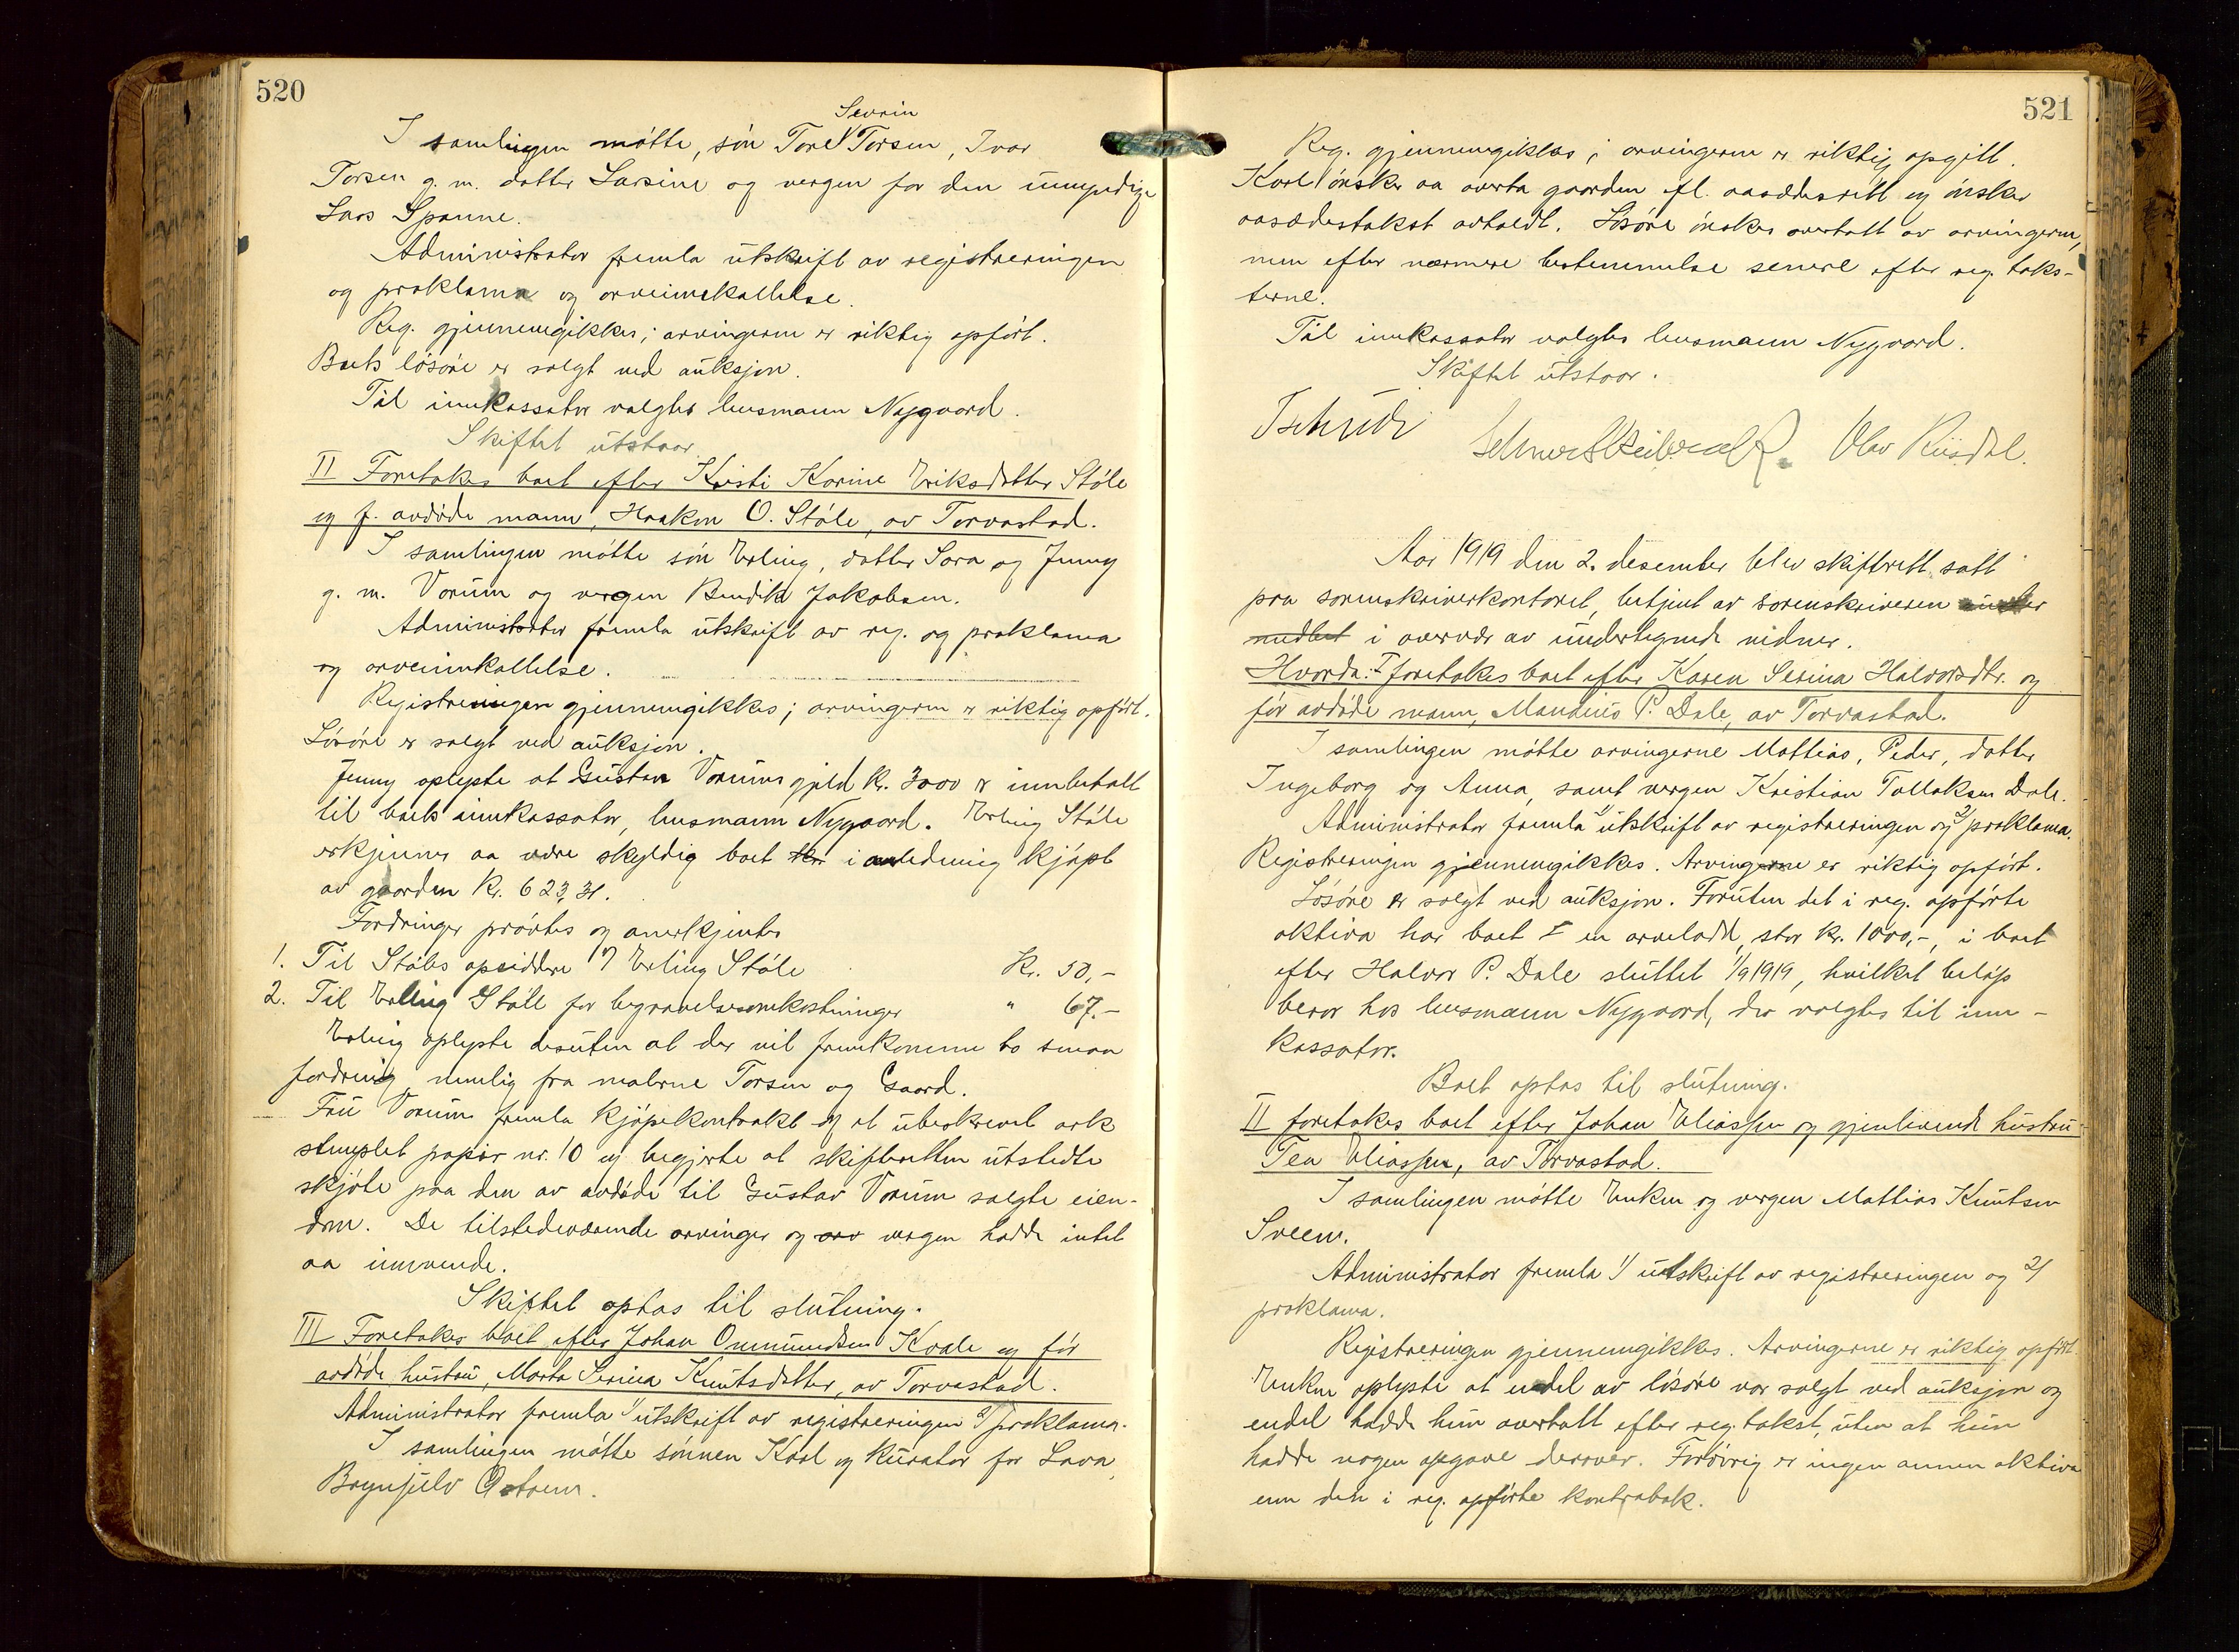 520
Sevrin
I samlingen møtte, søn Tore V Torsen, Ivar
Torsen g. m. datter Larsine og vergen for den umyndige
Lars Spanne.
Administrator fremla utskrift av registreringen
og proklama og arveinnkallelse.
Reg. gjennemgikkes; arvingerne er riktig opført.
Boets løsøre er solgt ved auksjon.
Til innkassator valgtes lensmann Nygaard.
Skiftet utstaar.
II Foretokes boet efter Kristi Karine Eriksdatter Støle
og f. avdøde mann, Haakon O. Støle, av Torvastad.
I samlingen møtte søn Erling, datter Sara og Jenny
g. m. Vorum og vergen Bendik Jakobsen.
Administrator fremla utskrift av reg. og proklama
og arveinnkallelse.
Registreringen gjennemgikkes; arvingerne er riktig opført.
Løsøre er solgt ved auksjon.
Jenny oplyste at Gustav Vorums gjeld kr. 3000 er innbetalt
til boets innkassator, lensmann Nygaard. Erling Støle
erkjenner aa være skyldig boet i anledning kjøpt
av gaarden kr. 623,31.
Fordringer prøvtes og anerkjentes
1. Til Støles opsiddere v/ Erling Støle Kr. 50,-
2. Til Erling Støle for begravelsesomkostninger " 67.-
Erling oplyste desuten at der vil fremkomme to smaa
fordring, nemlig fra malerne Torsen og Gaard.
Fru Vorum fremla kjøpekontrakt og et ubeskrevet ark
stemplet papir nr. 10 og begjærte at skifteretten utstedte
skjøte paa den av avdøde til Gustav Vorum solgte eien-
dom. De tilstedeværende arvinger og vergen hadde intet
aa innvende.
Skiftet optas til slutning.
III Foretokes boet efter Johan Ommundsen Kvale og før
avdøde hustru, Marta Serina Knutsdatter, av Torvastad.
Administrator fremla 1/ utskrift av registreringen 2/ proklama.
I samlingen møtte sønnen Karl og kurator for Lava,
Brynjulv Østrem.
521
Reg. gjennemgikkes; arvingerne er riktig opgitt.
Karl ønsker aa overta gaarden efl. aasædesrett og ønsker
aasædestakst avholdt. Løsøre ønskes overtatt av arvingerne,
men efter nærmere bestemmelse senere efter reg. taks-
terne.
Til innkassator valgtes lensmann Nygaard.
Skiftet utstaar.
Tschudi Olav Riisdal.
Aar 1919 den 2. desember blev skifterett satt
paa sorenskriverkontoret, betjent av sorenskriveren
i overvær av undertegnede vidner.
Hvorda: I foretokes boet efter Karen Serina Halvorsdtr. og
før avdøde mann, Mandius P. Dale, av Torvastad.
I samlingen møtte arvingerne Mattias, Peder, datter
Ingeborg og Anna, samt vergen Kristian Tollaksen Dale.
Administrator fremla 1/ utskrift av registreringen og 2/ proklama.
Registreringen gjennemgikkes. Arvingerne er riktig opført.
Løsøre er solgt ved auksjon. Foruten det i reg. opførte
aktiva har boet en arvelodd, stor kr. 1000,-, i boet
efter Halvor P. Dale sluttet 1/9 1919, hvilket beløp
beror hos lensmann Nygaard, der valgtes til inn-
kassator.
Boet optas til slutning.
II foretokes boet efter Johan Eliassen og gjenlevende hustru
Tea Eliassen, av Torvastad.
I samlingen møtte Enken og vergen Mattias Knutsen
Sveen.
Administrator fremla 1/ utskrift av registreringen og 2/
proklama.
Registreringen gjennemgikkes. Arvingerne er riktig opført.
Enken oplyste at endel av løsøre var solgt ved auksjon og
endel hadde hun overtatt efter reg. takst, uten at hun
hadde nogen opgave derover. Forøvrig er ingen annen aktiva
enn den i reg. opførte kontrabok.